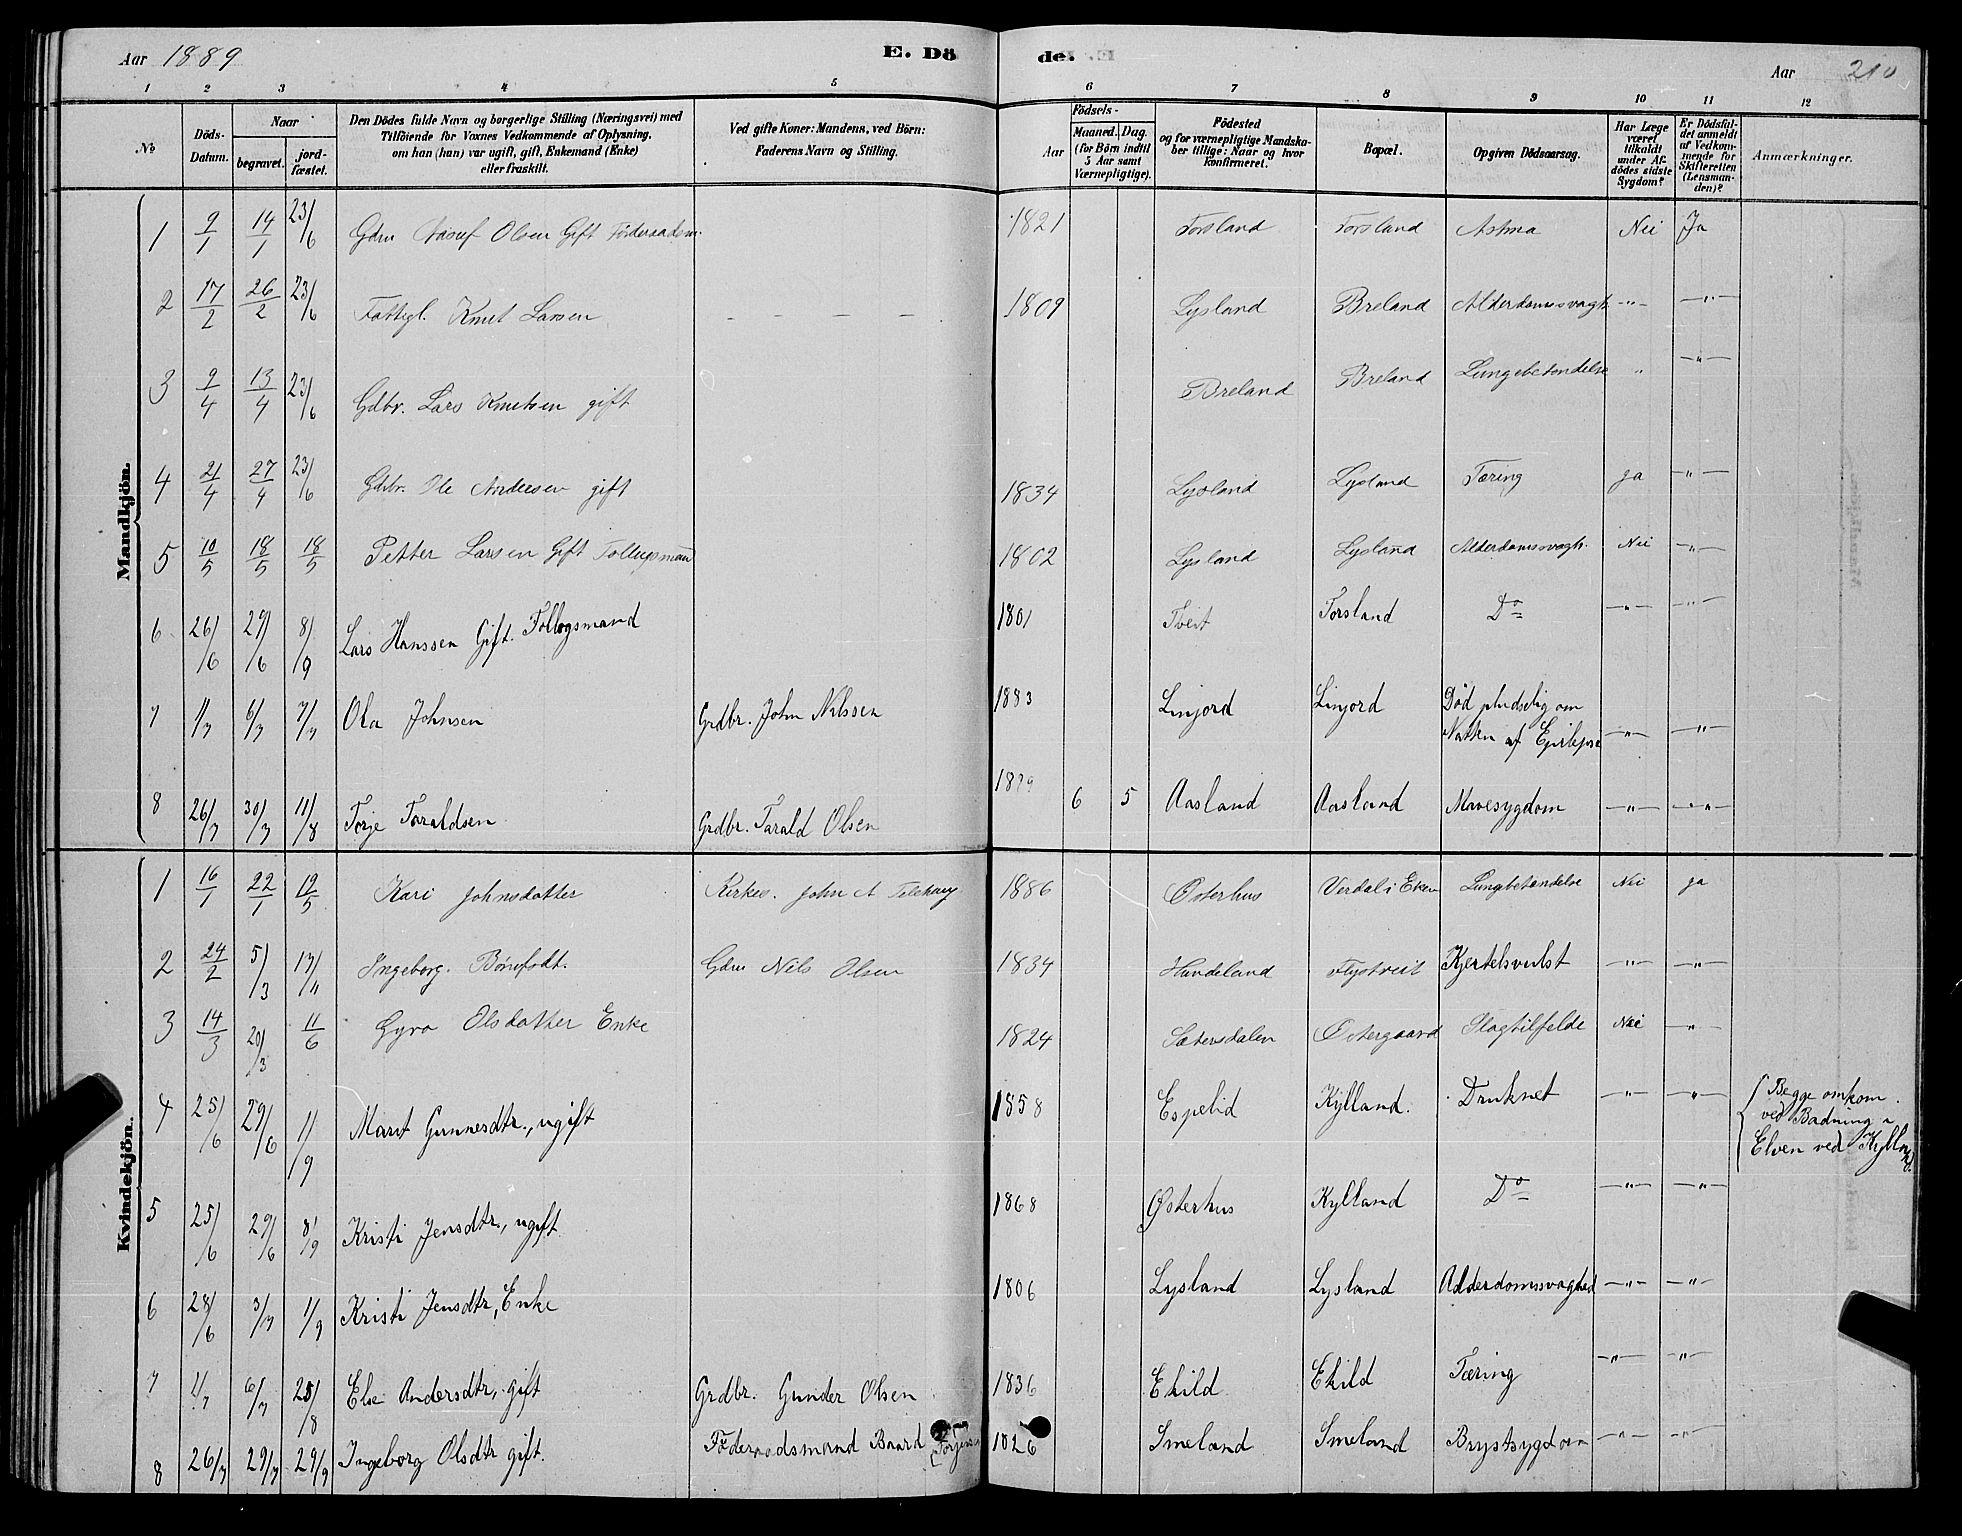 Aar 1889
E. Dö
de.
Aar 210
1 2 3 4 5 6 7 8 9 10 11 12
No
Döds-Datum.
Naar
begravet. jord-fæstet.
Den Dödes fulde Navn og borgerlige Stilling (Næringsvei) med
Tilföiende for Voxnes Vedkommende af Oplysning,
om han (hun) var ugift, gift, Enkemand (Enke)
eller fraskilt.
Ved gifte Koner: Mandens, ved Börn:
Faderens Navn og Stilling.
Födsels-
Aar
Maaned. Dag.
(for Börn indtil
5 Aar samt
Værnepligtige).
Födested
og for værnepligtige Mandska-
ber tillige: Naar og hvor
konfirmeret.
Bopæl.
Opgiven Dödsaarsag.
Har Læge
været
tilkaldt
under Af-
dödes sidste
Sygdom?
Er Dödsfal-
det anmeldt
af Vedkom-
mende for
Skifteretten
(Lensman-
den)?
Anmærkninger.
Mandkjön.
1 9/1 14/1 23/6 Gdm Olsen Gift Föderaadsm. 1821 Torsland Torsland Astma Nei Ja
2 17/2 26/2 23/6 Fattigl. Knut Larsen – – – – 1809 Lysland Breland Alderdomssvagh. -"- -"-
3 9/4 13/4 23/6 Gdbr. Lars Knutsen gift Breland Breland Lungebetændelse " -"-
4 21/4 27/4 23/6 Gdbr. Ole Andersen gift 1834 Lysland Lysland Tæring ja -"-
5 10/5 18/5 18/5 Petter Larsen Gift 1802 Lysland Lysland Alderdomssvagh. Nei -"-
6 26/6 29/6 8/9 Lars Hanssen Gift. 1801 Tveit Torsland Do -"- -"-
7 1/7 6/7 7/7 Ola Johnsen Grdbr. John Nilssen 1883 Linjord Linjord Død pludselig om
Natten af Epilepsi -"- -"-
8 26/7 30/7 11/8 Terje Taraldsen Grdbr. Tarald Olsen 1879 6 5 Aasland Aasland Mavesygdom -"- -"-
Kvindekjön.
1 16/1 22/1 19/5 Kari Johnsdatter John A 1886 Østerhus Verdal i Eken Lungebetændelse Nei ja
2 24/2 5/3 Ingeborg Gdm Nils Olsen 1834 Handeland Flystveit Kjertelsvulst -"- -"-
3 14/3 20/3 11/6 Gyro Olsdatter Enke 1824 Sætersdalen Østergaard Slagtilfelde Nei -"-
4 25/6 29/6 1/9 Marit Gunnersdtr., ugift 1858 Espelid Kylland. Druknet -"- -"- Begge omkom
ved Badning i
Elven ved Kylland.
5 25/6 29/6 8/9 Kristi Jensdtr., ugift 1868 Østerhus Kylland Do -"- -"-
6 28/6 3/7 1/9 Kristi Jensdtr, Enke 1806 Lysland Lysland Alderdomssvaghed -"- -"-
7 1/7 6/7 25/8 Else Andersdtr, gift Grdbr. Gunder Olsen 1836 Ekild Ekild Tæring -"- -"-
8 26/7 29/7 29/9 Ingeborg Olsdtr gift. Føderaadsmand Baard Terjesen 1826 Smeland Smeland Brystsygdom -"- -"-